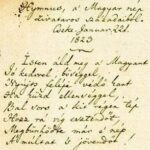 Hymnus, a' Magyar nép
zivataros századaiból
Cseke Januar. 22d
1823
Isten áldd meg a' Magyart
Jó kedvvel, bőséggel
Nyújts feléje védő kart
Ha küzd ellenséggel;
Bal sors a' kit régen tép
Hozz rá víg esztendőt,
Megbűnhődte már a' nép
A' multat 's jövendőt!